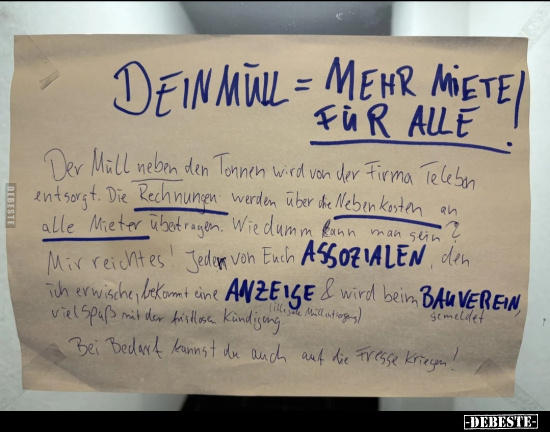 DEIN MÜLL = MEHR MIETE!
FÜR ALLE
Der Müll neben den Tonnen wird von der Firma Teleban
entsorgt. Die Rechnungen werden über die Nebenkosten an
alle Mieter übetragen. Wie dumm kann man sein?
Mir reichtes! Jeder von Euch ASSOZIALEN, den
ich erwische, bekommt eine ANZEIGE & wird beim BAUVEREIN,
gemeldet
viel Spaß mit der fristlosen Kündigung (illegale Müllentsorgung)
Bei Bedarf kannst du auch auf die Fresse kriegen!
DEBESTE
-DEBESTE-